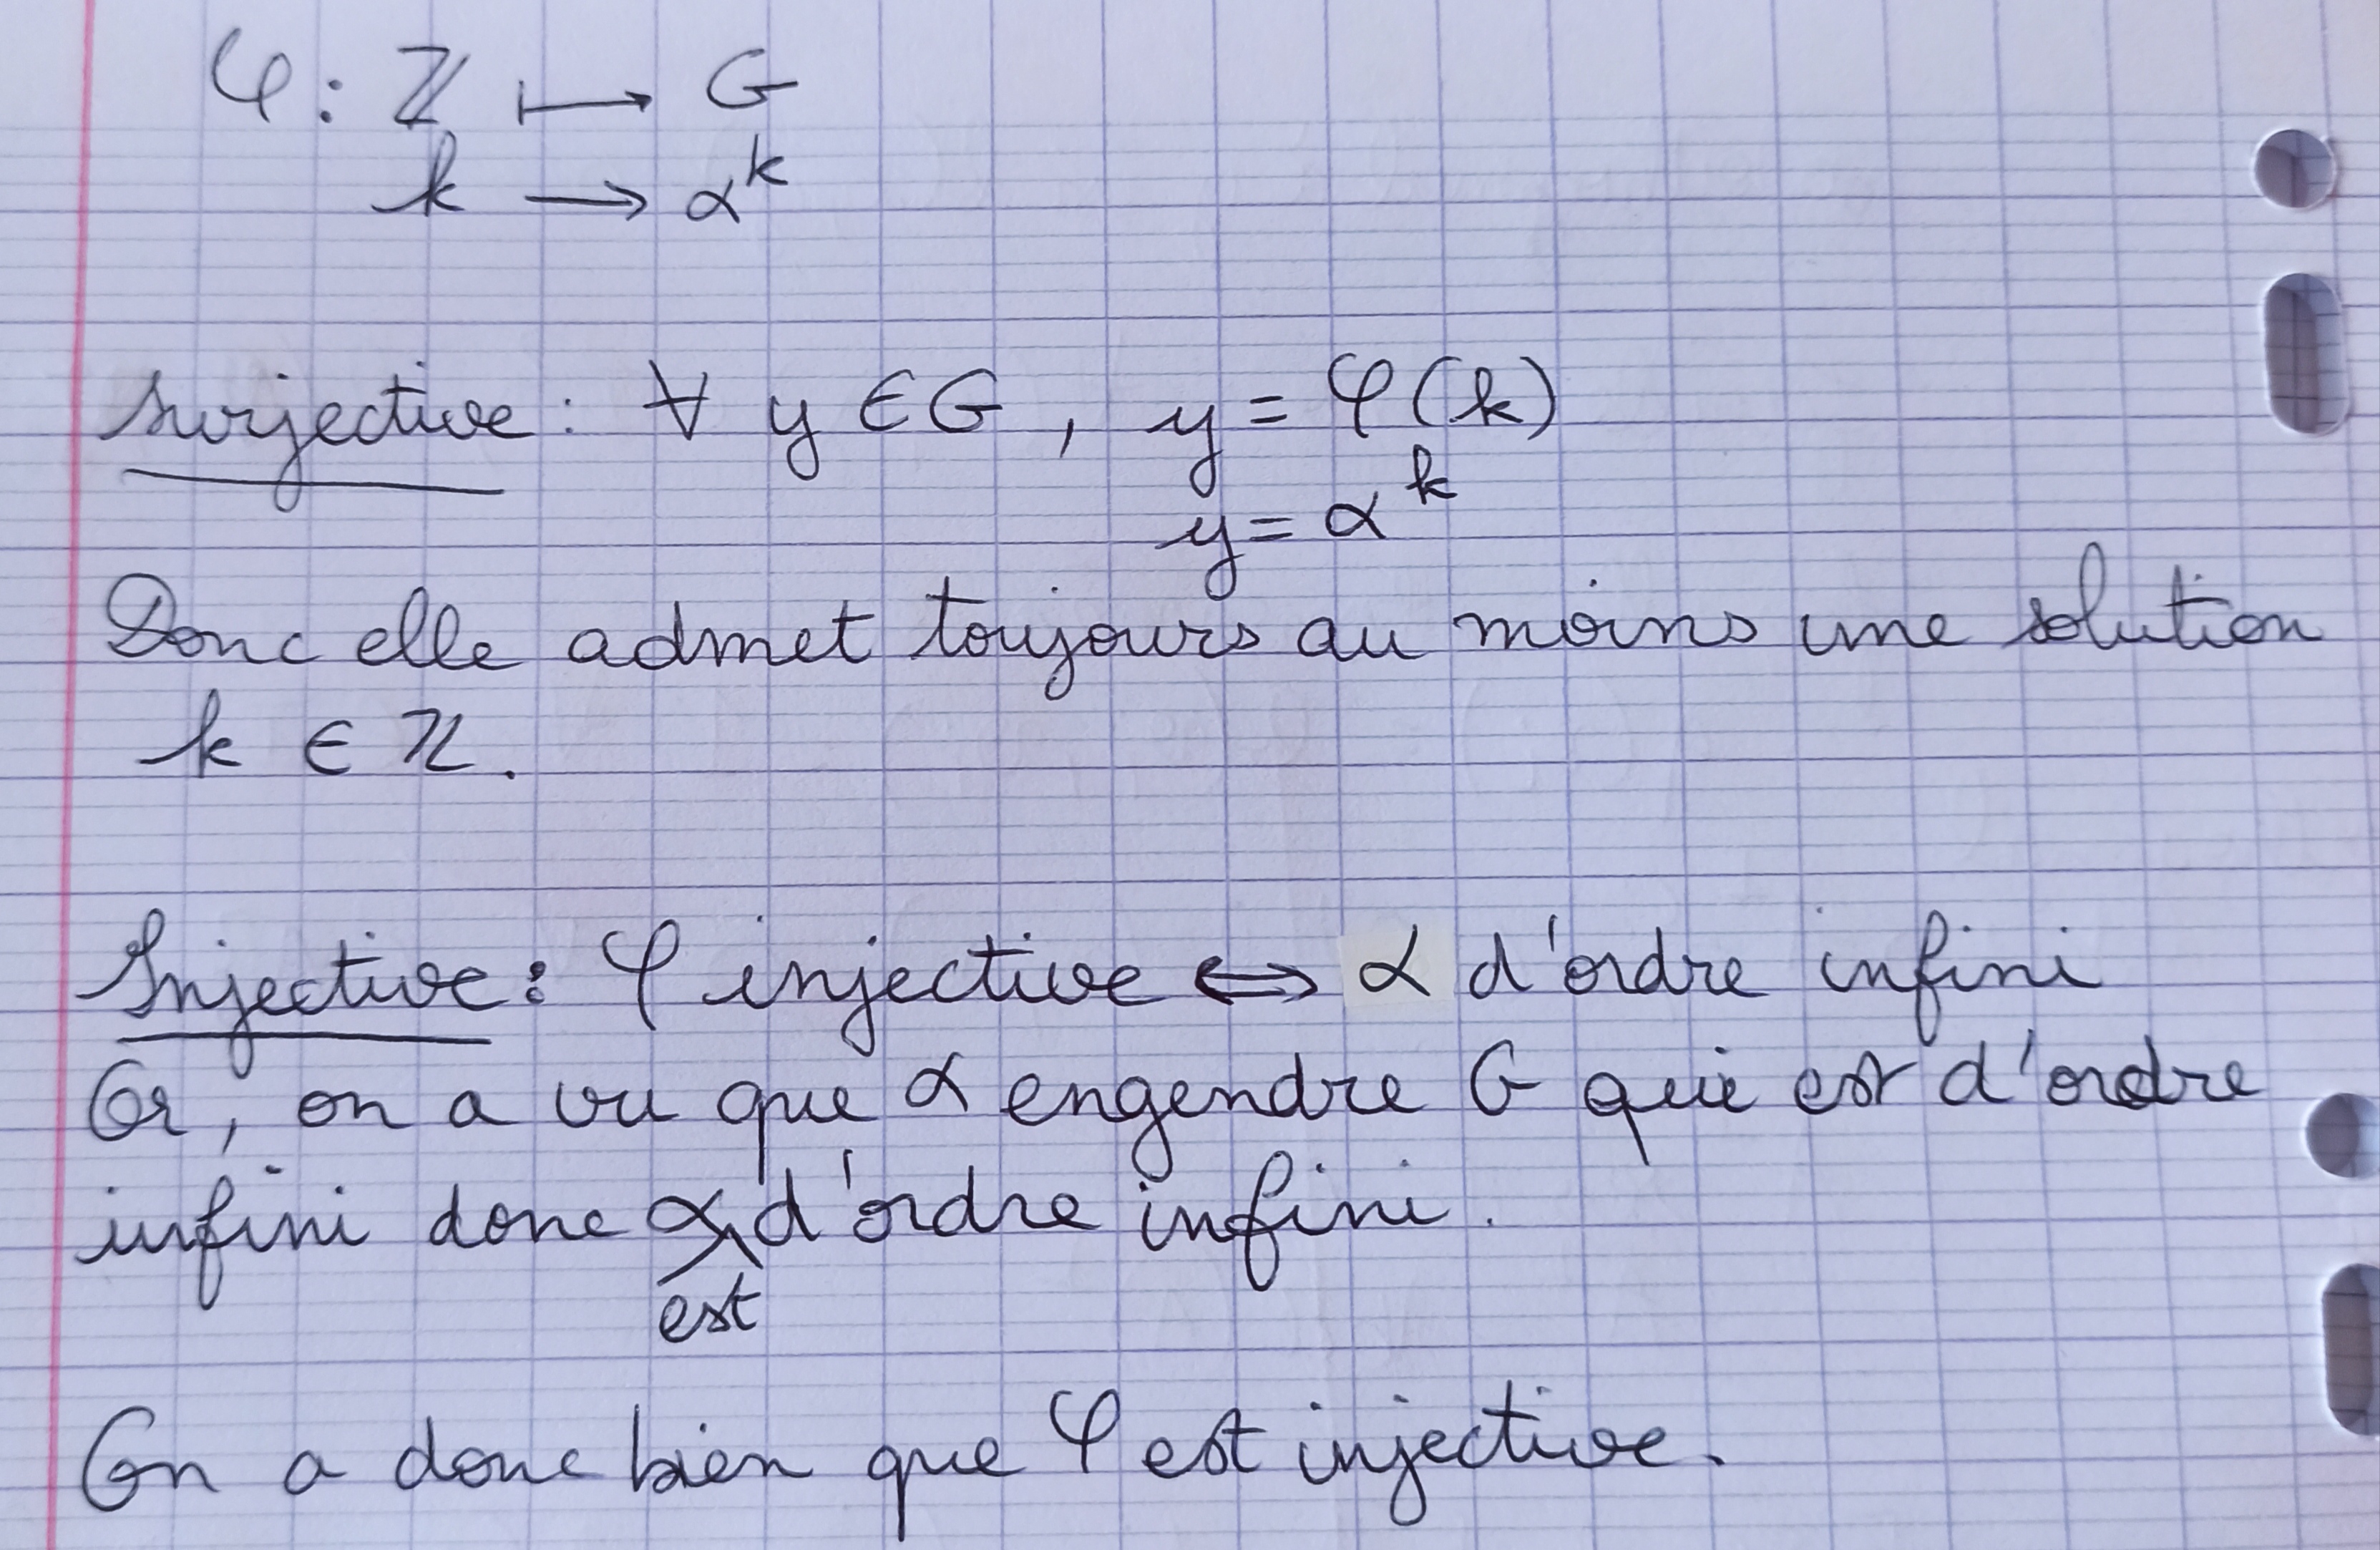 φ : ℤ ⟼ G
k → α^k
surjective : ∀ y ∈ G , y = φ(k)
y = α^k
Donc elle admet toujours au moins une solution
k ∈ ℤ.
Injective : φ injective ⟺ α d'ordre infini
Or, on a vu que α engendre G qui est d'ordre
infini donc α est d'ordre infini.
On a donc bien que φ est injective.